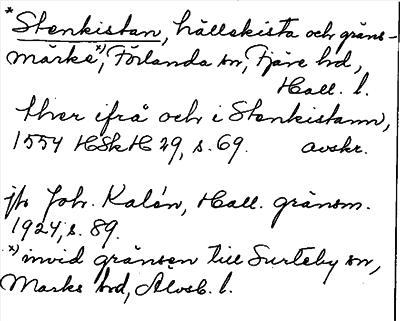 *Stenkistan, hällekista och gräns-
märke*), Förlanda sn, Fjäre hd,
Hall. l.
ther ifrå och i Stenkistann,
1554 HSkH 29, s. 69. avskr.
jfr Joh. Kalén, Hall. gränsm.
1924, s. 89.
*) invid gränsen till Surteby sn,
Marks hd, Älvsb. l.